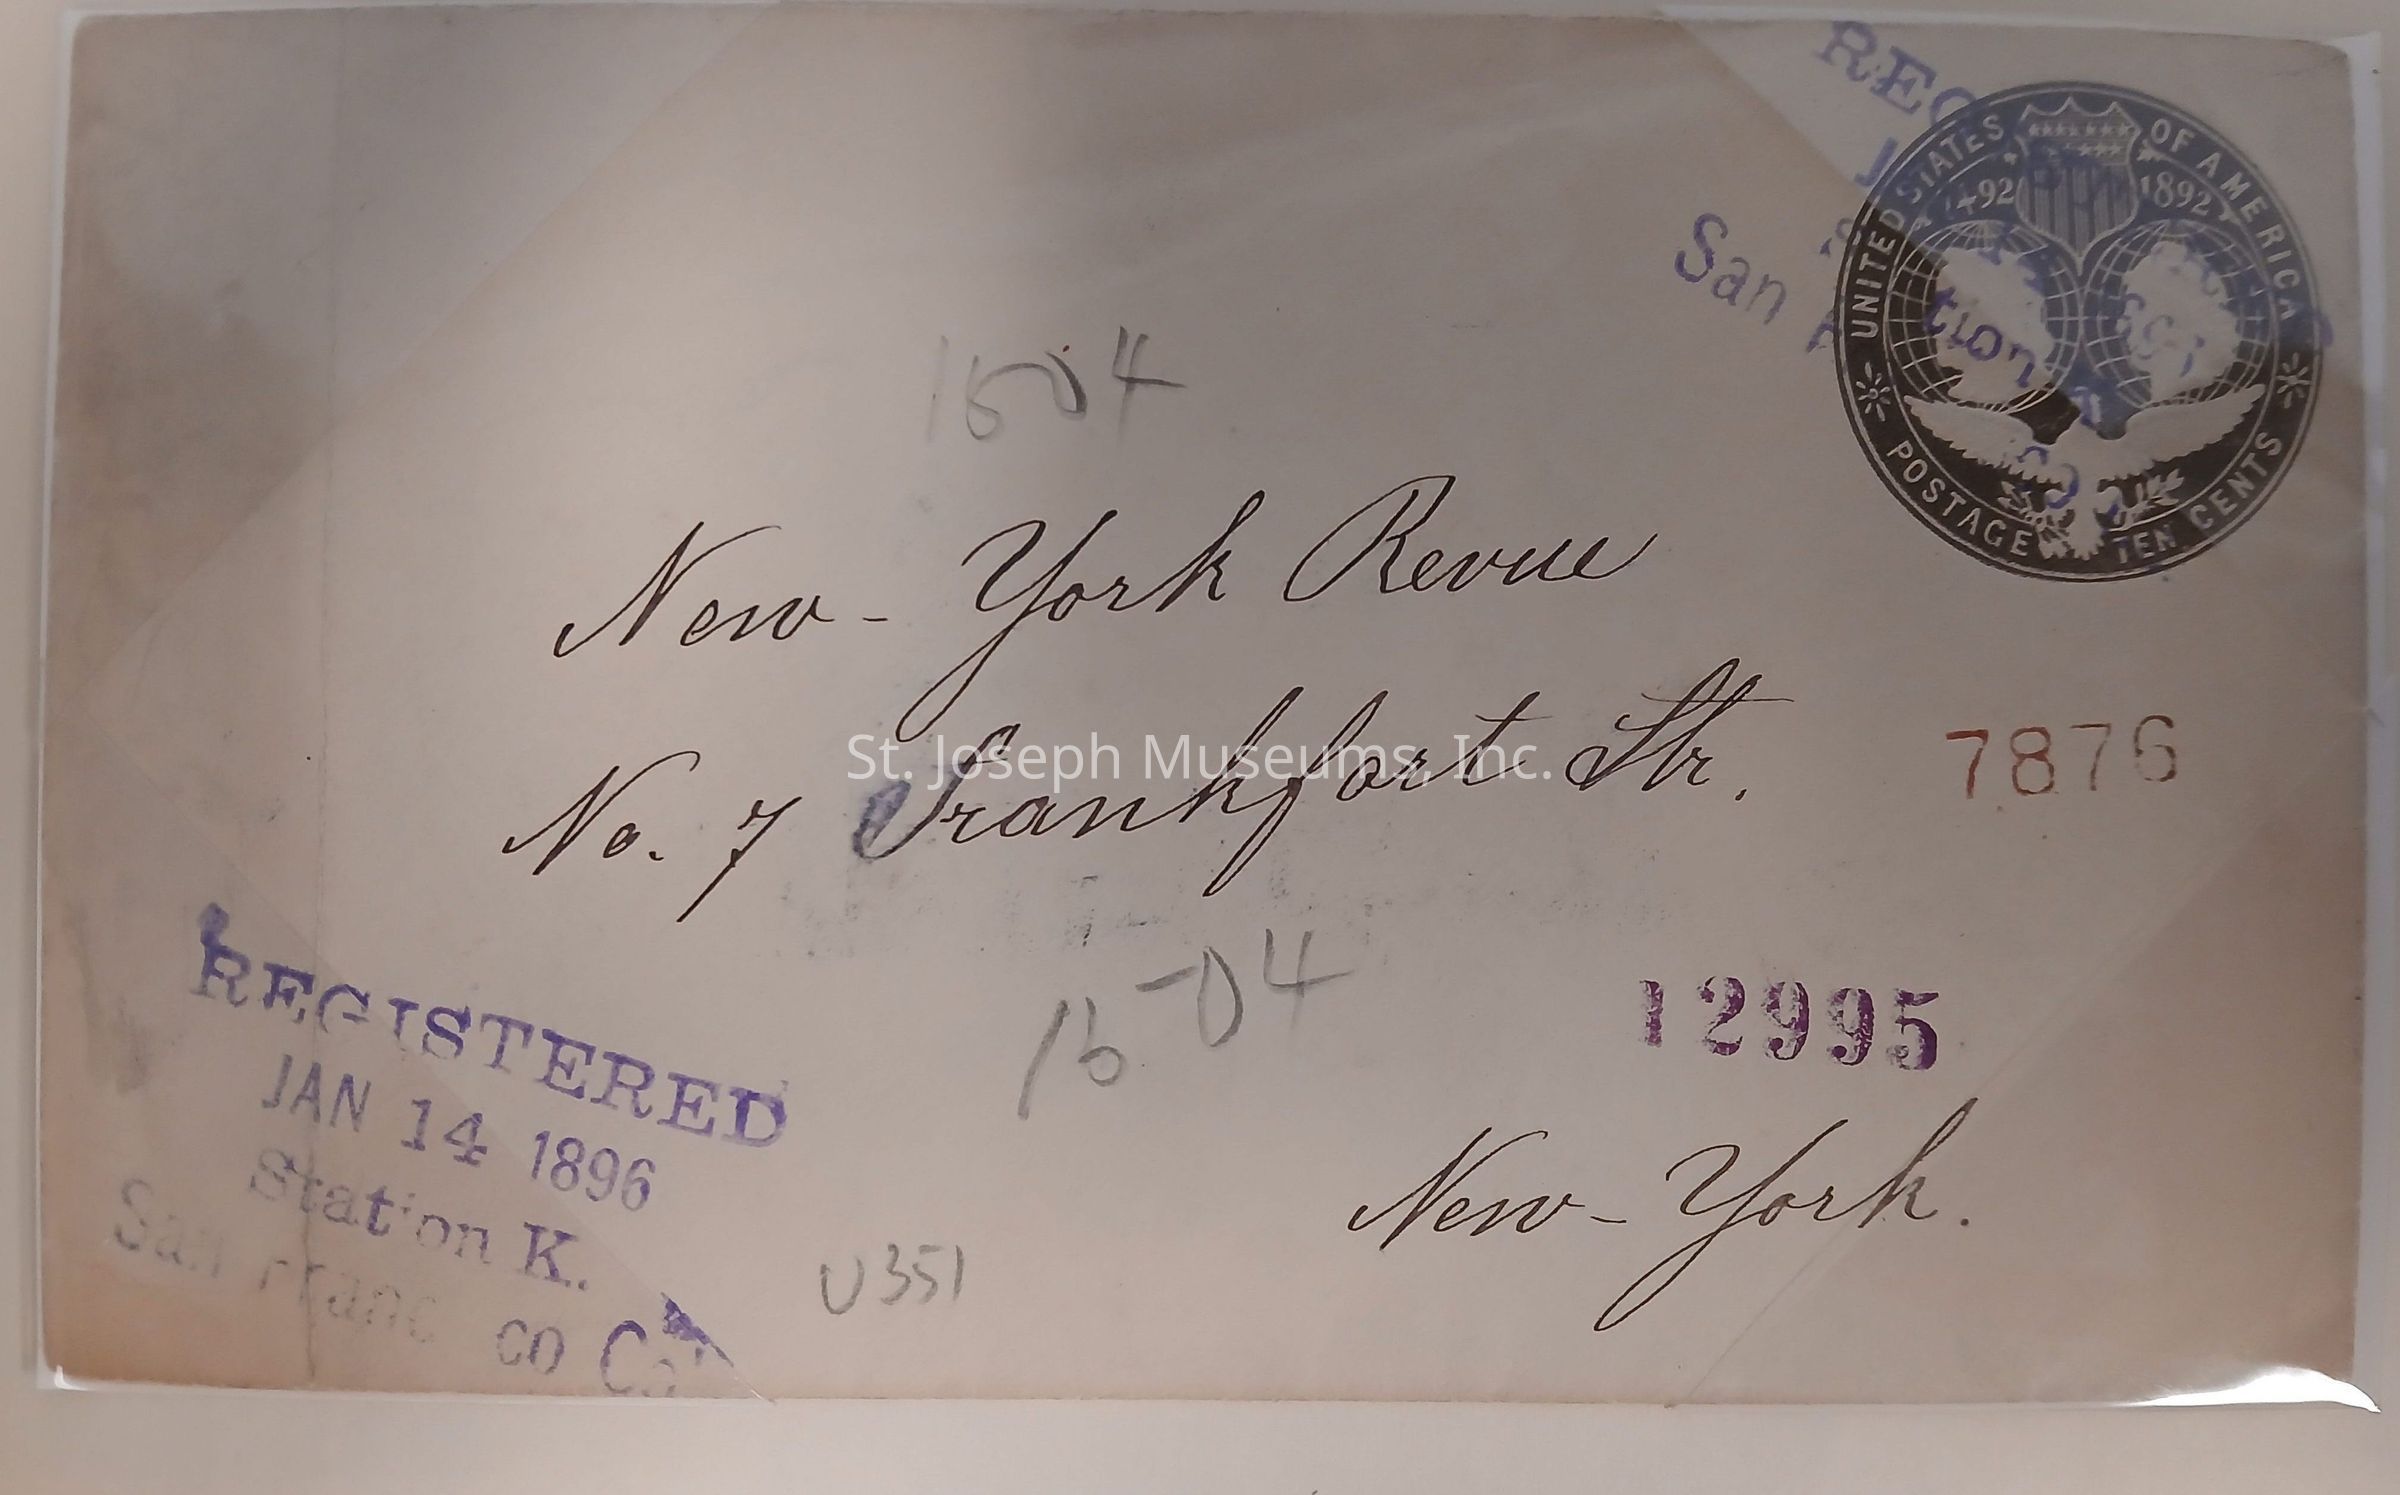 UNITED STATES OF AMERICA
1492 1892
POSTAGE TEN CENTS
San
1504
New-York Revue
No. 7 Frankfort Str.
St. Joseph Museums, Inc.
7876
REGISTERED
JAN 14 1896
Station K.
San Francisco Cal
15-04
12995
New-York.
U351